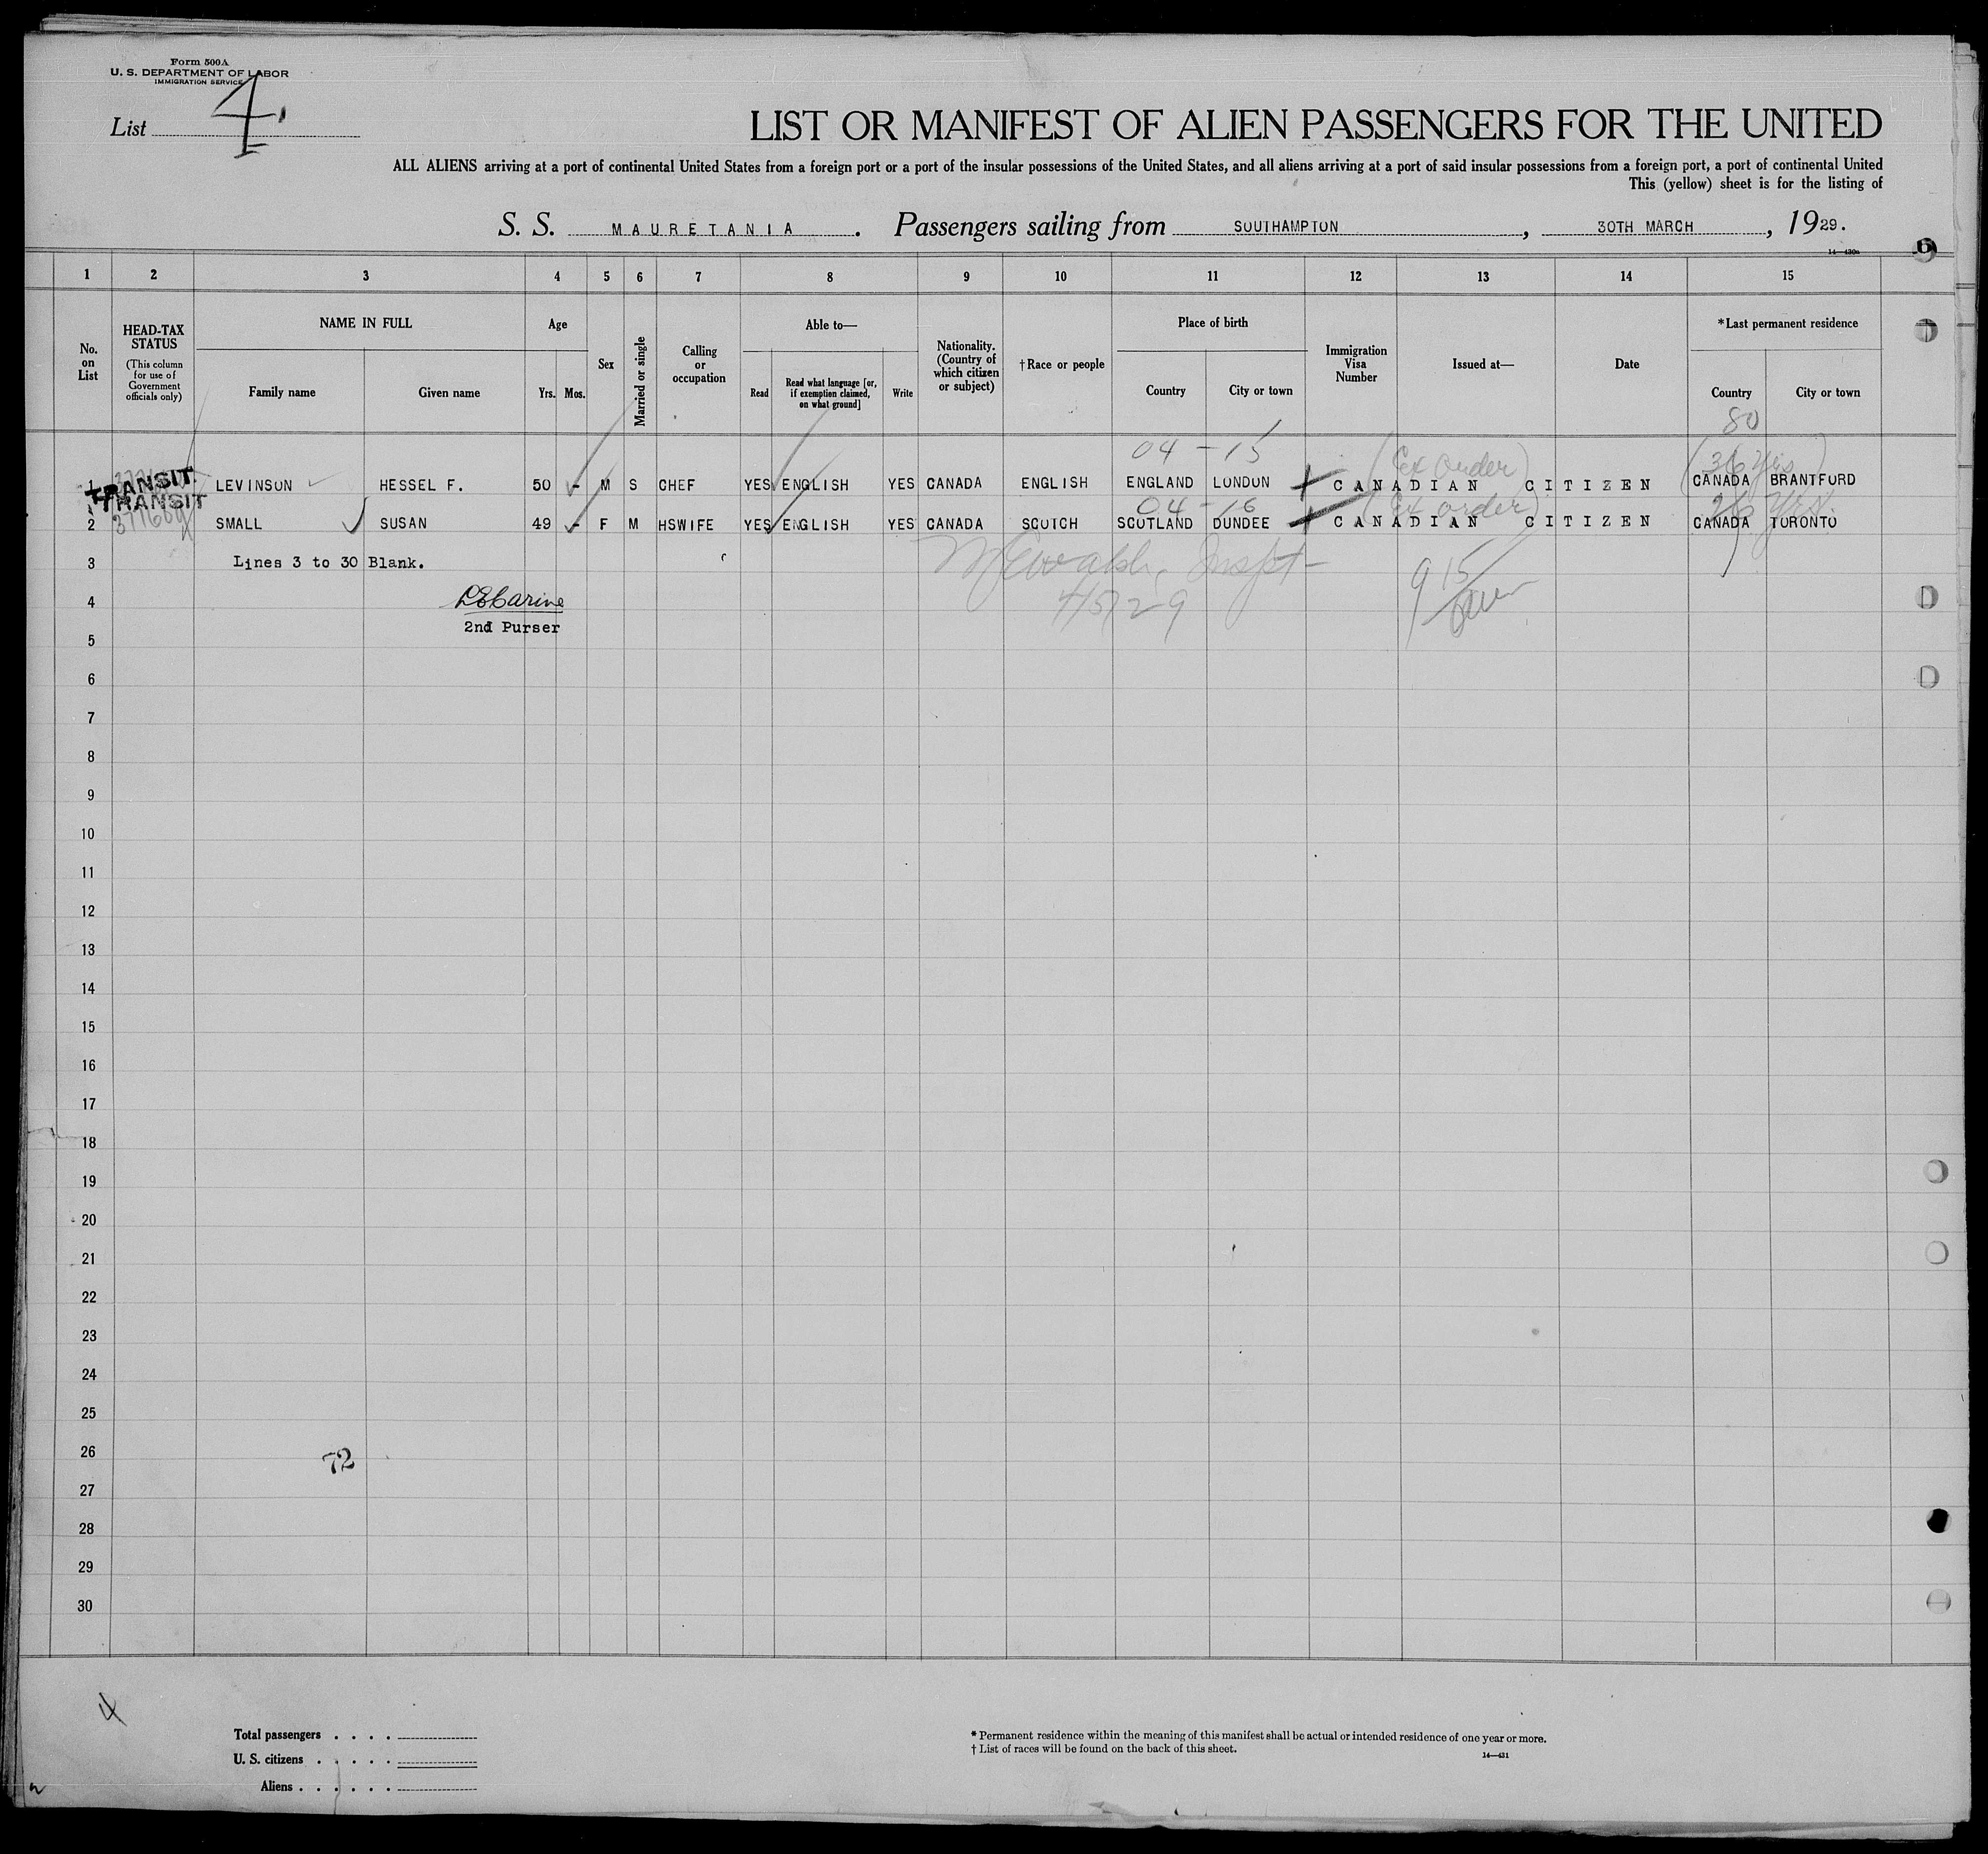 Form 500A
U. S. DEPARTMENT OF LABOR
IMMIGRATION SERVICE
List 4.
LIST OR MANIFEST OF ALIEN PASSENGERS FOR THE UNITED
ALL ALIENS arriving at a port of continental United States from a foreign port or a port of the insular possessions of the United States, and all aliens arriving at a port of said insular possessions from a foreign port, a port of continental United
This (yellow) sheet is for the listing of
S. S. MAURETANIA. Passengers sailing from SOUTHAMPTON, 30TH MARCH, 1929.
14—430a
6
1 2 3 4 5 6 7 8 9 10 11 12 13 14 15
No. on List
HEAD-TAX STATUS
(This column for use of Government officials only)
NAME IN FULL
Family name
Given name
Age
Yrs. Mos.
Sex
Married or single
Calling or occupation
Able to—
Read
Read what language [or, if exemption claimed, on what ground]
Write
Nationality. (Country of which citizen or subject)
†Race or people
Place of birth
Country
City or town
Immigration Visa Number
Issued at—
Date
*Last permanent residence
Country
City or town
80
04 - 15 (Ex Order) (36 Yrs)
1 TRANSIT LEVINSON HESSEL F. 50 - M S CHEF YES ENGLISH YES CANADA ENGLISH ENGLAND LONDON CANADIAN CITIZEN CANADA BRANTFORD
04 - 16 (Ex order) 26 Yrs.
2 TRANSIT SMALL SUSAN 49 - F M HSWIFE YES ENGLISH YES CANADA SCOTCH SCOTLAND DUNDEE CANADIAN CITIZEN CANADA TORONTO
3 Lines 3 to 30 Blank.
Inspt
4
4/5/29
915
2nd Purser
5
6
7
8
9
10
11
12
13
14
15
16
17
18
19
20
21
22
23
24
25
26
72
27
28
29
30
4
Total passengers . . . .
U. S. citizens . . . . .
Aliens . . . . . .
* Permanent residence within the meaning of this manifest shall be actual or intended residence of one year or more.
† List of races will be found on the back of this sheet.
14—431